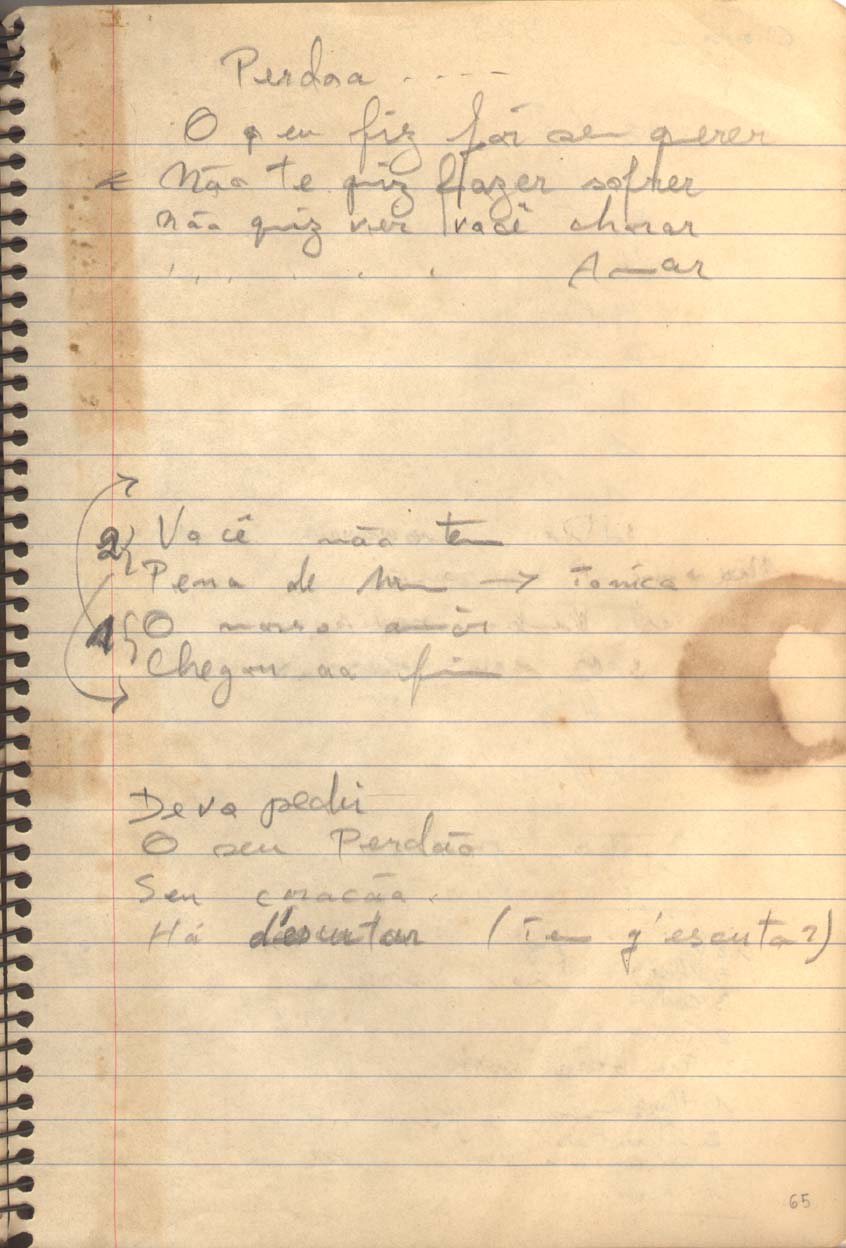 Perdoa . . - -
O q eu fiz foi sem querer
Não te quiz fazer sofrer
não quiz ver você chorar
' , , . . . Amar
2) Você não tem
Pena de mim → Tonica
1) O nosso amôr
Chegou ao fim
Devo pedir
O seu Perdão
Seu coracão.
Há d'escutar (Tem q'escuta?)
65